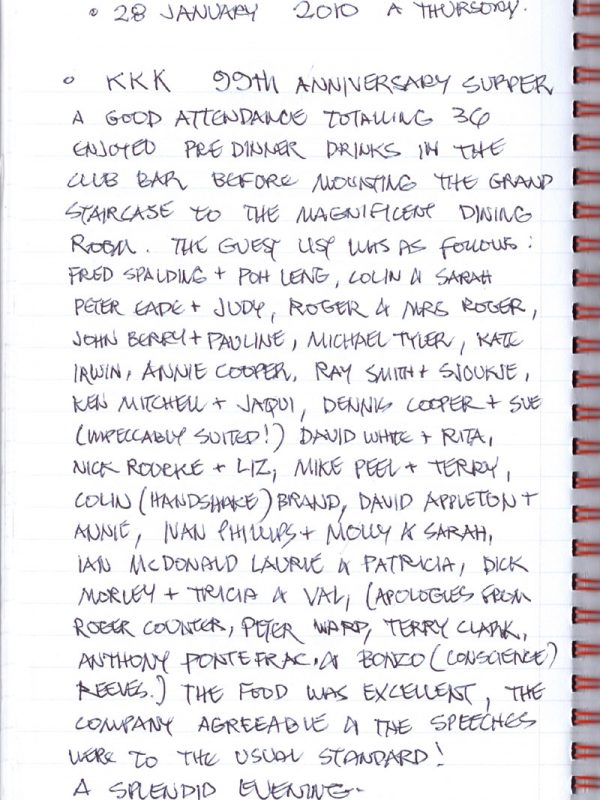 • 28 JANUARY 2010 A THURSDAY.
• KKK 99th ANNIVERSARY SUPPER
A GOOD ATTENDANCE TOTALLING 36
ENJOYED PRE DINNER DRINKS IN THE
CLUB BAR BEFORE MOUNTING THE GRAND
STAIRCASE TO THE MAGNIFICENT DINING
ROOM. THE GUEST LIST WAS AS FOLLOWS:
FRED SPALDING + POH LENG, COLIN & SARAH
PETER EADE + JUDY, ROGER & MRS ROGER,
JOHN BERRY + PAULINE, MICHAEL TYLER, KATE
IRWIN, ANNIE COOPER, RAY SMITH + SJOUKJE,
KEN MITCHELL + JAQUI, DENNIS COOPER + SUE
(IMPECCABLY SUITED!) DAVID WHITE + RITA,
NICK ROURKE + LIZ, MIKE PEEL + TERRY,
COLIN (HANDSHAKE) BRAND, DAVID APPLETON +
ANNIE, IVAN PHILLIPS + MOLLY & SARAH,
IAN MCDONALD LAURIE & PATRICIA, DICK
MORLEY + TRICIA & VAL, (APOLOGIES FROM
ROGER COUNTER, PETER WARD, TERRY CLARK,
ANTHONY PONTEFRAC. & BONZO (CONSCIENCE)
REEVES.) THE FOOD WAS EXCELLENT, THE
COMPANY AGREEABLE & THE SPEECHES
WERE TO THE USUAL STANDARD!
A SPLENDID EVENING.